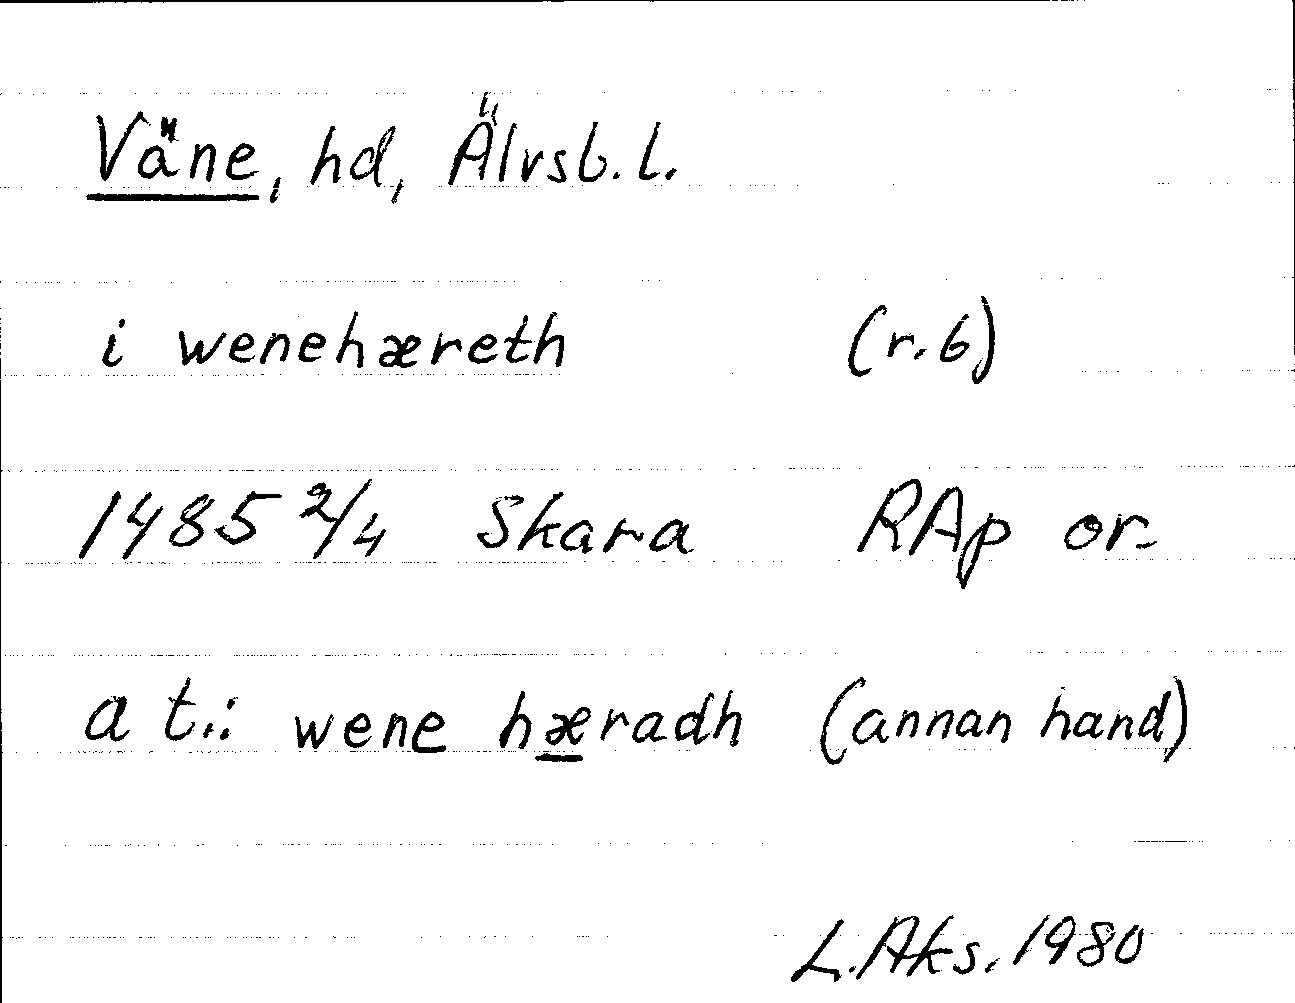 Väne, hd, Älvsb. l.
i wenehæreth (r. 6)
1485 2/4 Skara RAp or.
a t.: wene hæradh (annan hand)
L. Aks. 1980